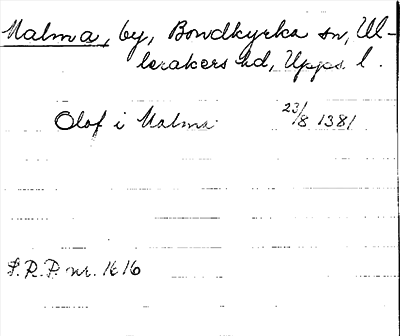 Malma, by, Bondkyrka sn, Ul-
lerakers hd, Upps. l.
Olof i Malma 23/8 1381
S.R.P. nr. 1616